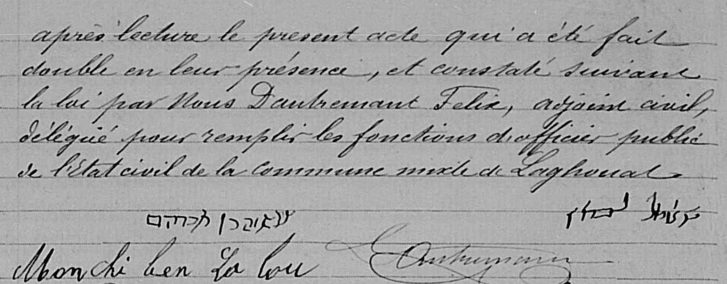 après lecture le present acte qui a été fait
double en leur présence, et constaté suivant
la loi par Nous Dautremant Felix, adjoint civil,
délégué pour remplir les fonctions d'officier public
de l'État civil de la commune mixte de Laghouat.
אברהם
Monchi ben La lou